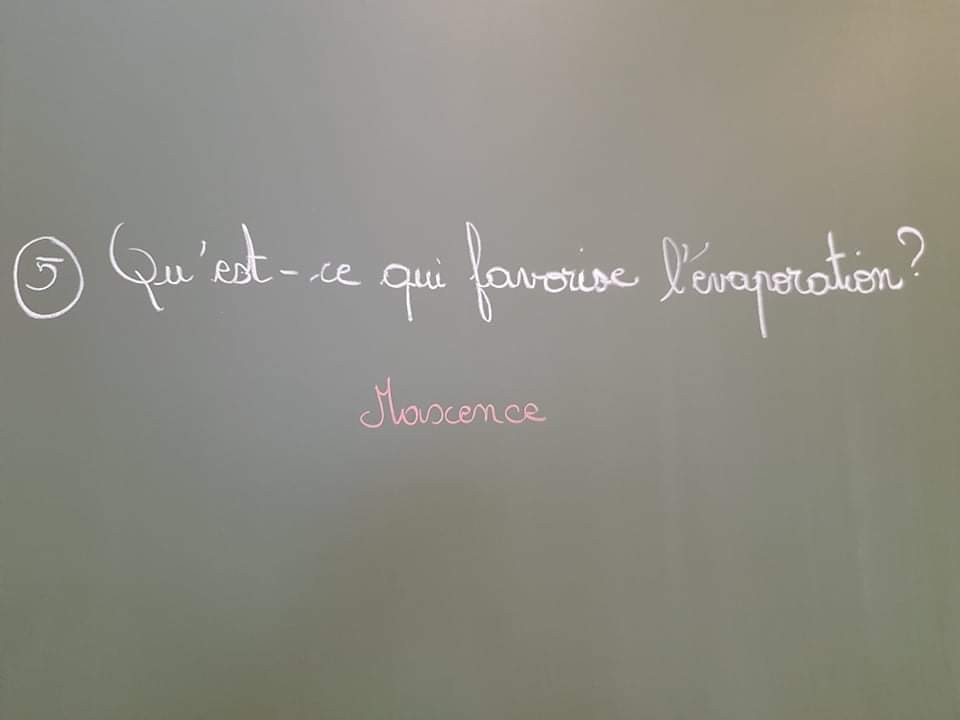 5 Qu'est-ce qui favorise l'évaporation?
Maxence